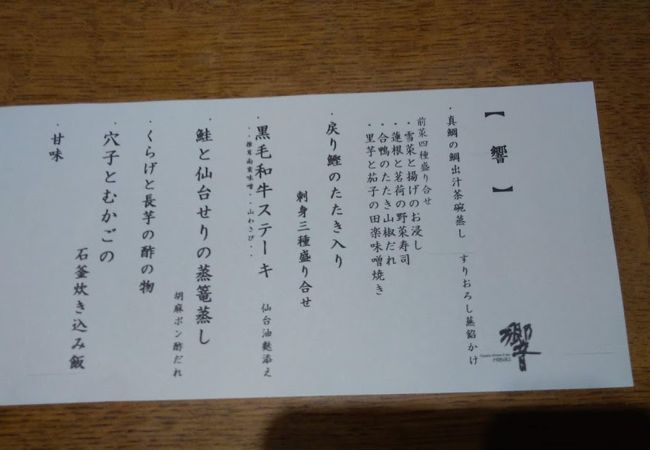 【響】
・真鯛の鯛出汁茶碗蒸し
すりおろし蒸餡かけ
前菜四種盛り合せ
・雪菜と揚げのお浸し
・蓮根と茗荷の野菜寿司
・合鴨のたたき山椒だれ
・里芋と茄子の田楽味噌焼き
・戻り鰹のたたき入り
刺身三種盛り合せ
・黒毛和牛ステーキ
仙台油麩添え
・鮭と仙台せりの蒸篭蒸し
胡麻ポン酢だれ
・くらげと長芋の酢の物
・穴子とむかごの
石釜炊き込み飯
・甘味
響